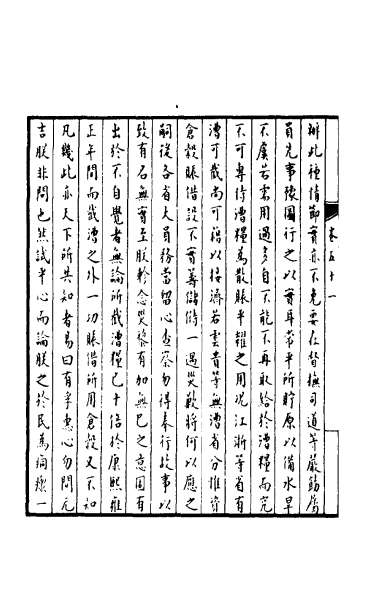 辦此種情節實亦不免要在督撫司道等嚴飭屬
員先事豫圖行之以實耳常平所貯原以備水旱
不虞若需用過多自不能不再取給於漕糧而究
不可專恃漕糧為散賑平糶之用况江浙等省有
漕可截尚可藉以接濟若雲貴等無漕省分惟資
倉穀賑借設不實籌儲偫一遇災歉將何以應之
嗣後各省大員務當留心查察勿得奉行故事以
致有名無實至朕軫念災黎有加無已之意固有
出於不自覺者無論所截漕糧已十倍於康熙雍
正年間而截漕之外一切賑借所用倉穀又不知
凡幾此亦天下所共知者易曰有孚惠心勿問元
吉朕非問也然試平心而論朕之於民為痌瘝一
卷五十一